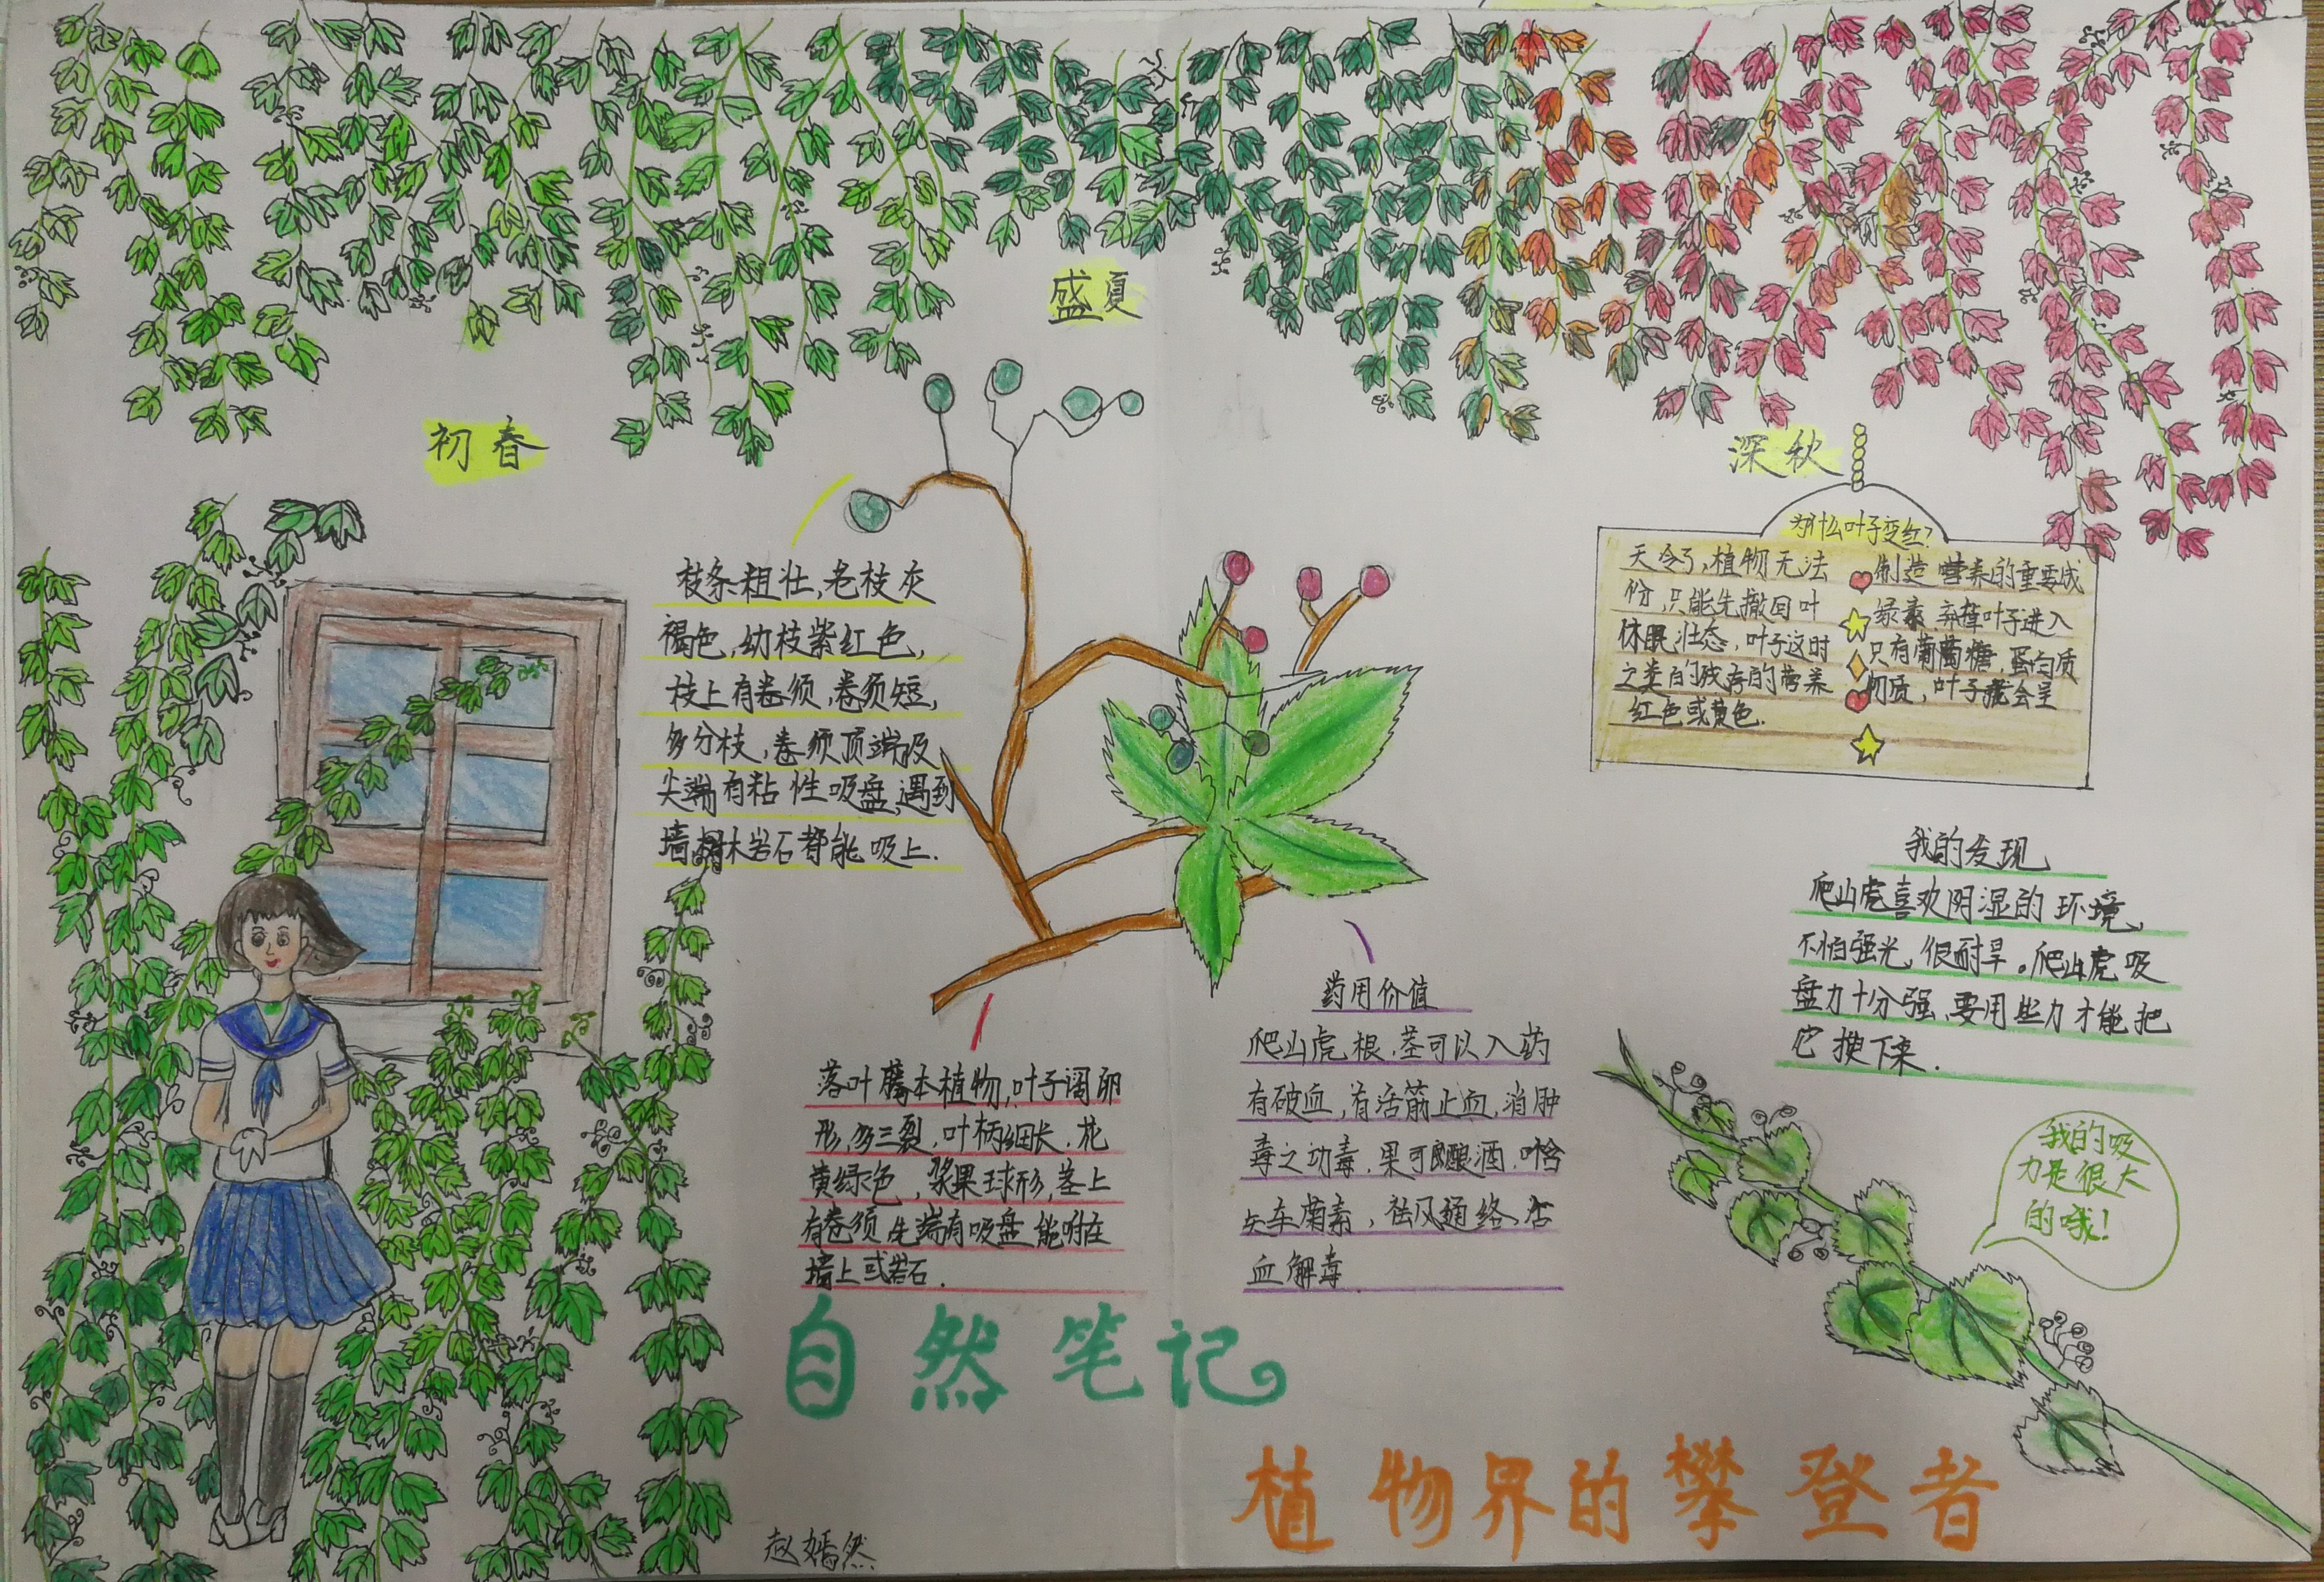 盛夏
初春
深秋
枝条粗壮,老枝灰
褐色,幼枝紫红色,
枝上有卷须,卷须短,
多分枝,卷须顶端及
尖端有粘性吸盘,遇到
墙树木岩石都能吸上.
为什么叶子变红?
天冷了,植物无法制造营养的重要成
份,只能先撤回叶绿素,弃掉叶子进入
休眠壮态,叶子这时只有葡萄糖,蛋白质
之类的残存的营养物质,叶子就会呈
红色或黄色.
我的发现
爬山虎喜欢阴湿的环境,
不怕强光,很耐旱。爬山虎吸
盘力十分强,要用些力才能把
它拽下来.
落叶藤本植物,叶子阔卵
形,多三裂,叶柄细长,花
黄绿色,浆果球形,茎上
有卷须先端有吸盘能附在
墙上或岩石.
药用价值
爬山虎根,茎可以入药
有破血,有活筋止血,消肿
毒之功毒,果可酿酒,叶含
矢车菊素,祛风通络,活
血解毒
我的吸
力是很大
的哦!
自然笔记
植物界的攀登者
赵嫣然